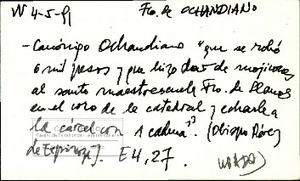 W 4-5-91 Fro. de OCHANDIANO
- Canónigo Ochandiano "que se robó
6 mil pesos y que hizo dar de mojicones
al santo maestrescuela Fro. de Llanos
en el coro de la catedral y echarle a
la cárcel con 1 cadena". (Obispo Pérez
de Espinoza). E4,27.